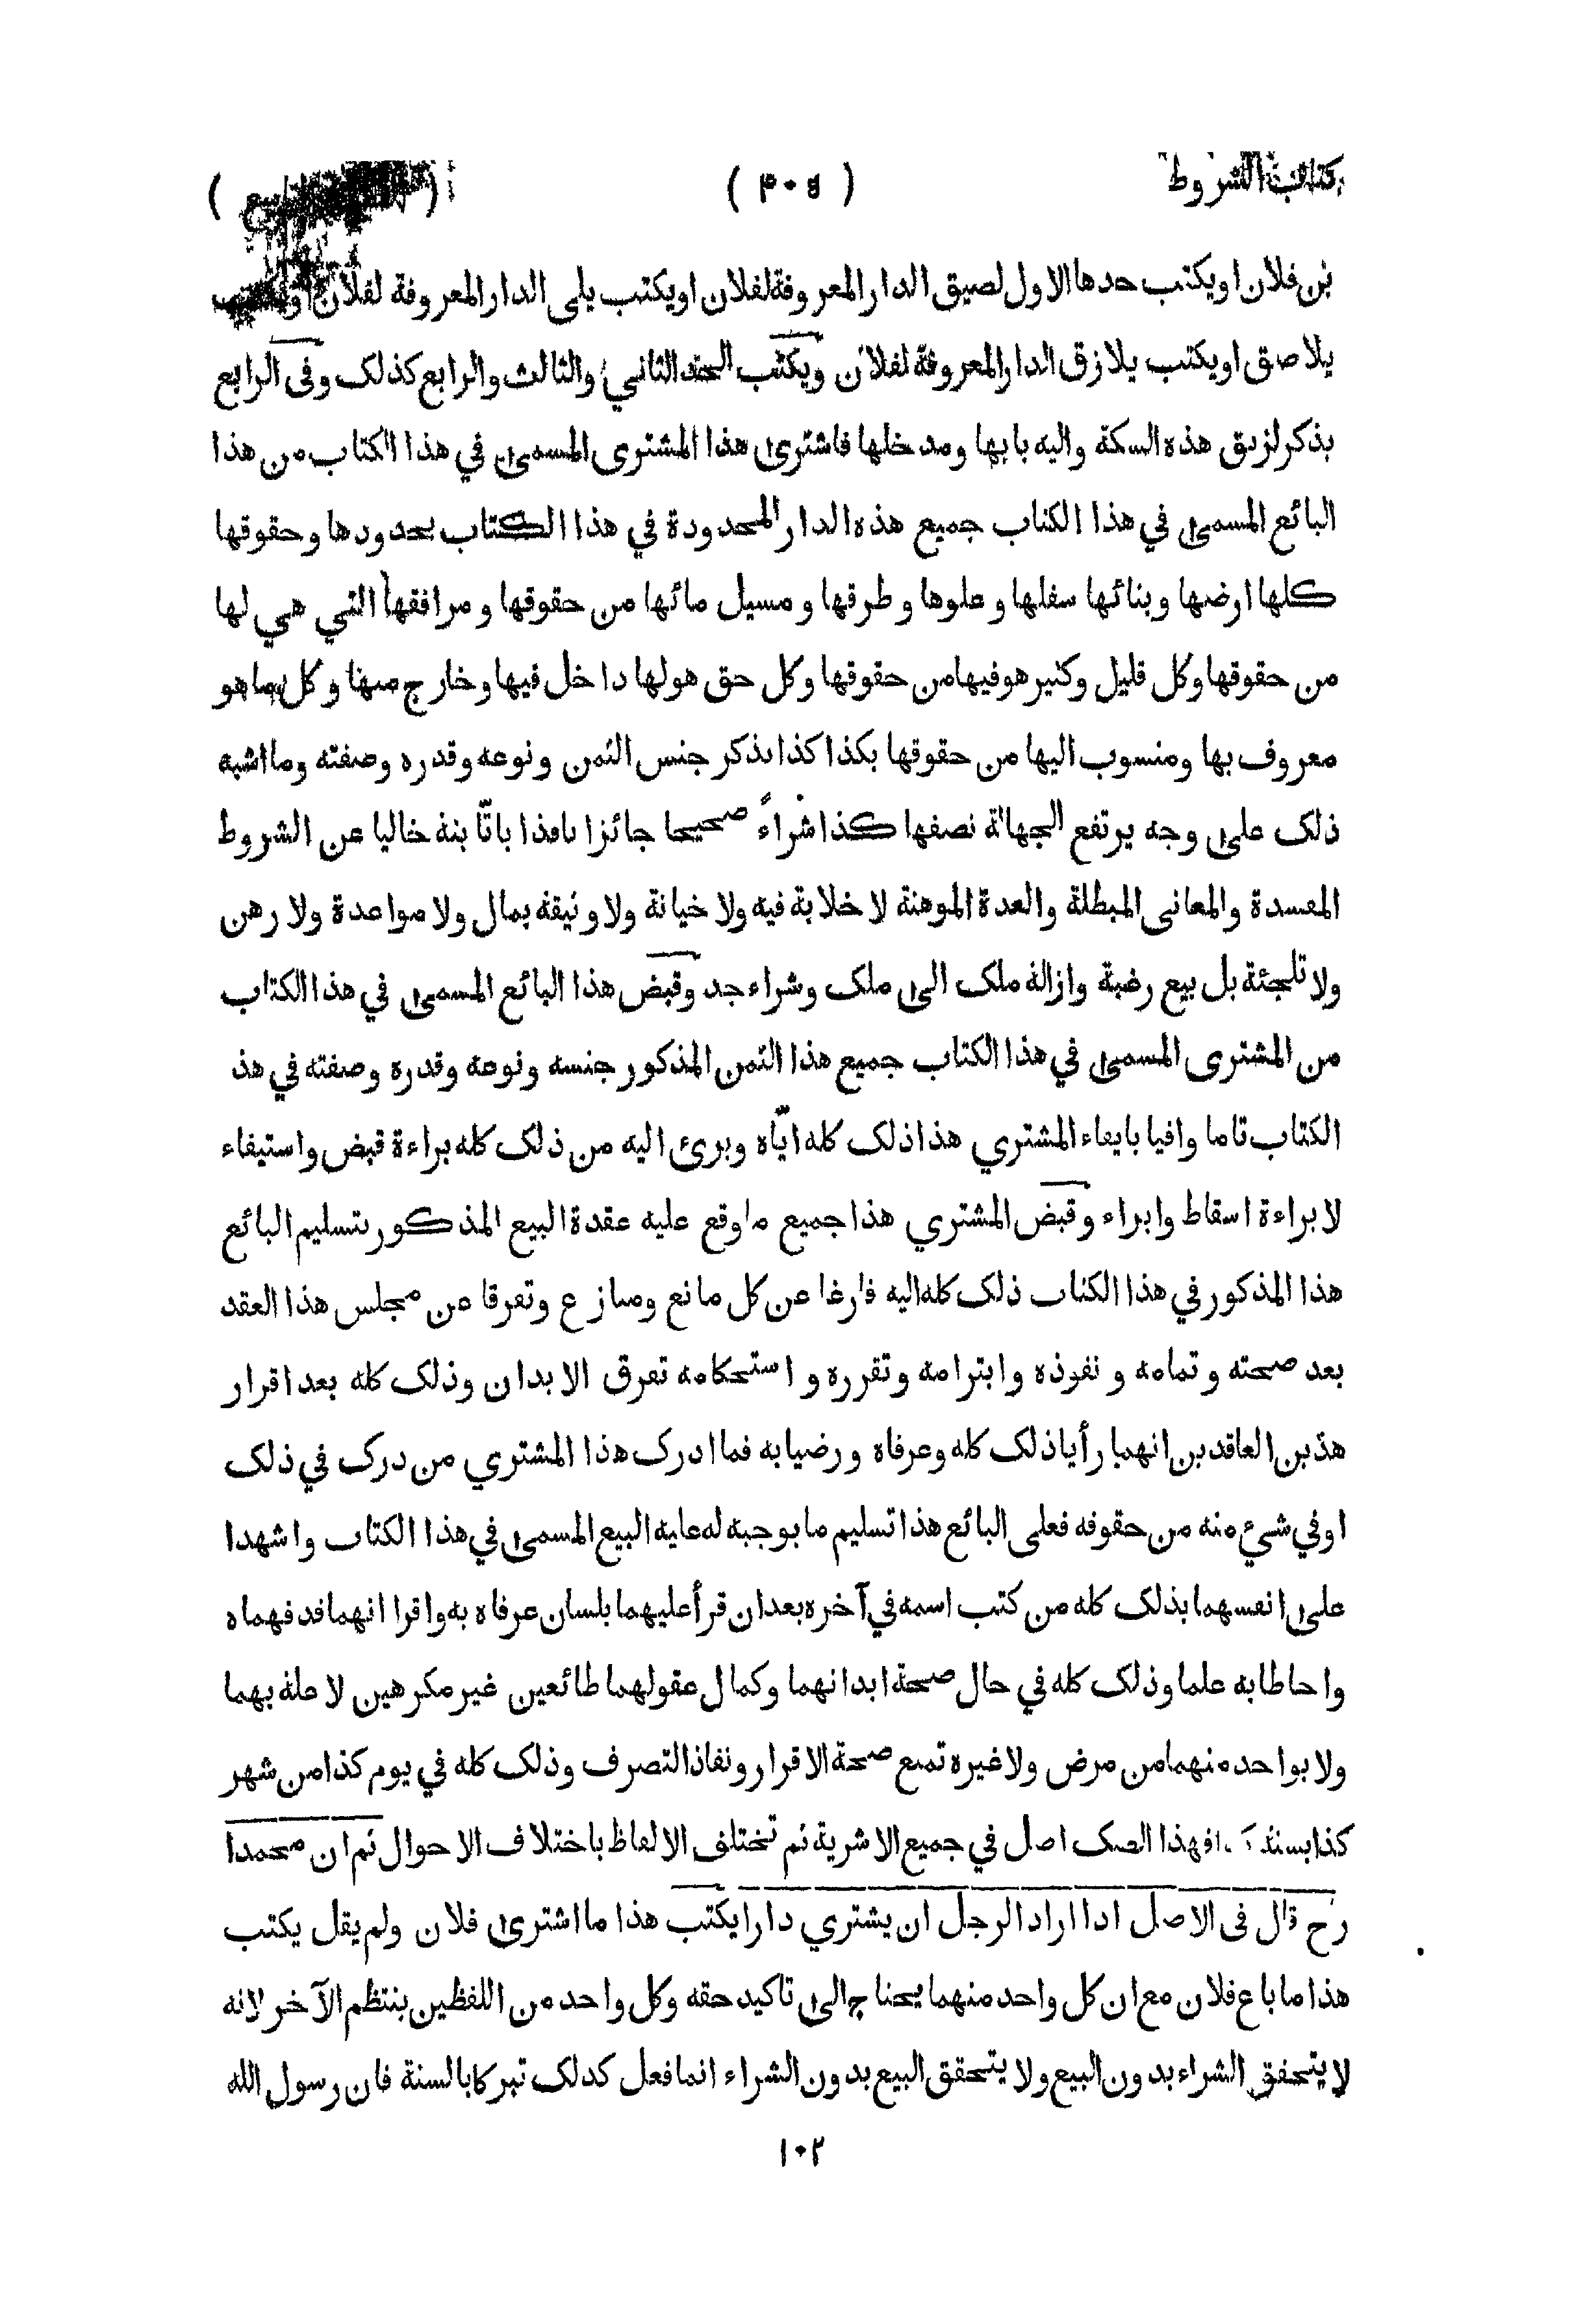 كتاب الشروط ( ۴۰۵ )
بن فلان او يكتب حدها الاول لصيق الدار المعروفة لفلان او يكتب يلي الدار المعروفة لفلان او يكتب
يلاصق او يكتب يلازق الدار المعروفة لفلان ويكتب الحد الثاني والثالث والرابع كذلك وفى الرابع
يذكر لزيق هذه السكة واليه بابها ومدخلها فاشترى هذا المشترى المسمى في هذا الكتاب من هذا
البائع المسمى في هذا الكتاب جميع هذه الدار المحدودة في هذا الكتاب بحدودها وحقوقها
كلها ارضها وبنائها سفلها وعلوها وطرقها ومسيل مائها من حقوقها ومرافقها التي هي لها
من حقوقها وكل قليل وكثير هو فيها من حقوقها وكل حق هو لها داخل فيها وخارج منها وكل ما هو
معروف بها ومنسوب اليها من حقوقها بكذا كذا يذكر جنس الثمن ونوعه وقدره وصفته وما اشبه
ذلك على وجه يرتفع الجهالة نصفها كذا شراءً صحيحا جائزا نافذا باتّا بتة خاليا عن الشروط
المفسدة والمعانى المبطلة والعدة الموهنة لا خلابة فيه ولا خيانة ولا وثيقة بمال ولا مواعدة ولا رهن
ولا تلجئة بل بيع رغبة وازالة ملك الى ملك وشراء جد وقبض هذا البائع المسمى في هذا الكتاب
من المشترى المسمى في هذا الكتاب جميع هذا الثمن المذكور جنسه ونوعه وقدره وصفته في هذ
الكتاب تاما وافيا بايفاء المشتري هذا ذلك كله ايّاه وبرئ اليه من ذلك كله براءة قبض واستيفاء
لا براءة اسقاط وابراء وقبض المشتري هذا جميع ما وقع عليه عقدة البيع المذكور بتسليم البائع
هذا المذكور في هذا الكتاب ذلك كله اليه فارغا عن كل مانع ومنازع وتفرقا عن مجلس هذا العقد
بعد صحته وتمامه ونفوذه وابترامه وتقرره واستحكامه تفرق الابدان وذلك كله بعد اقرار
هذين العاقدين انهما رأيا ذلك كله وعرفاه ورضيا به فما ادرك هذا المشتري من درك في ذلك
اوفي شيء منه من حقوقه فعلى البائع هذا تسليم ما يوجبه له عليه البيع المسمى في هذا الكتاب واشهدا
على انفسهما بذلك كله من كتب اسمه في آخره بعد ان قرأ عليهما بلسان عرفاه به واقرا انهما قد فهماه
واحاطا به علما وذلك كله في حال صحة ابدانهما وكمال عقولهما طائعين غير مكرهين لا علة بهما
ولا بواحد منهما من مرض ولا غيره تمنع صحة الاقرار ونفاذ التصرف وذلك كله في يوم كذا من شهر
كذا بسنة فهذا الصك اصل في جميع الاشرية ثم تختلف الالفاظ باختلاف الاحوال ثم ان محمدا
رح قال فى الاصل اذا اراد الرجل ان يشتري دارا يكتب هذا ما اشترى فلان ولم يقل يكتب
هذا ما باع فلان مع ان كل واحد منهما يحتاج الى تاكيد حقه وكل واحد من اللفظين ينتظم الآخر لانه
لا يتحقق الشراء بدون البيع ولا يتحقق البيع بدون الشراء انما فعل كذلك تبركا بالسنة فان رسول الله
۱۰۲